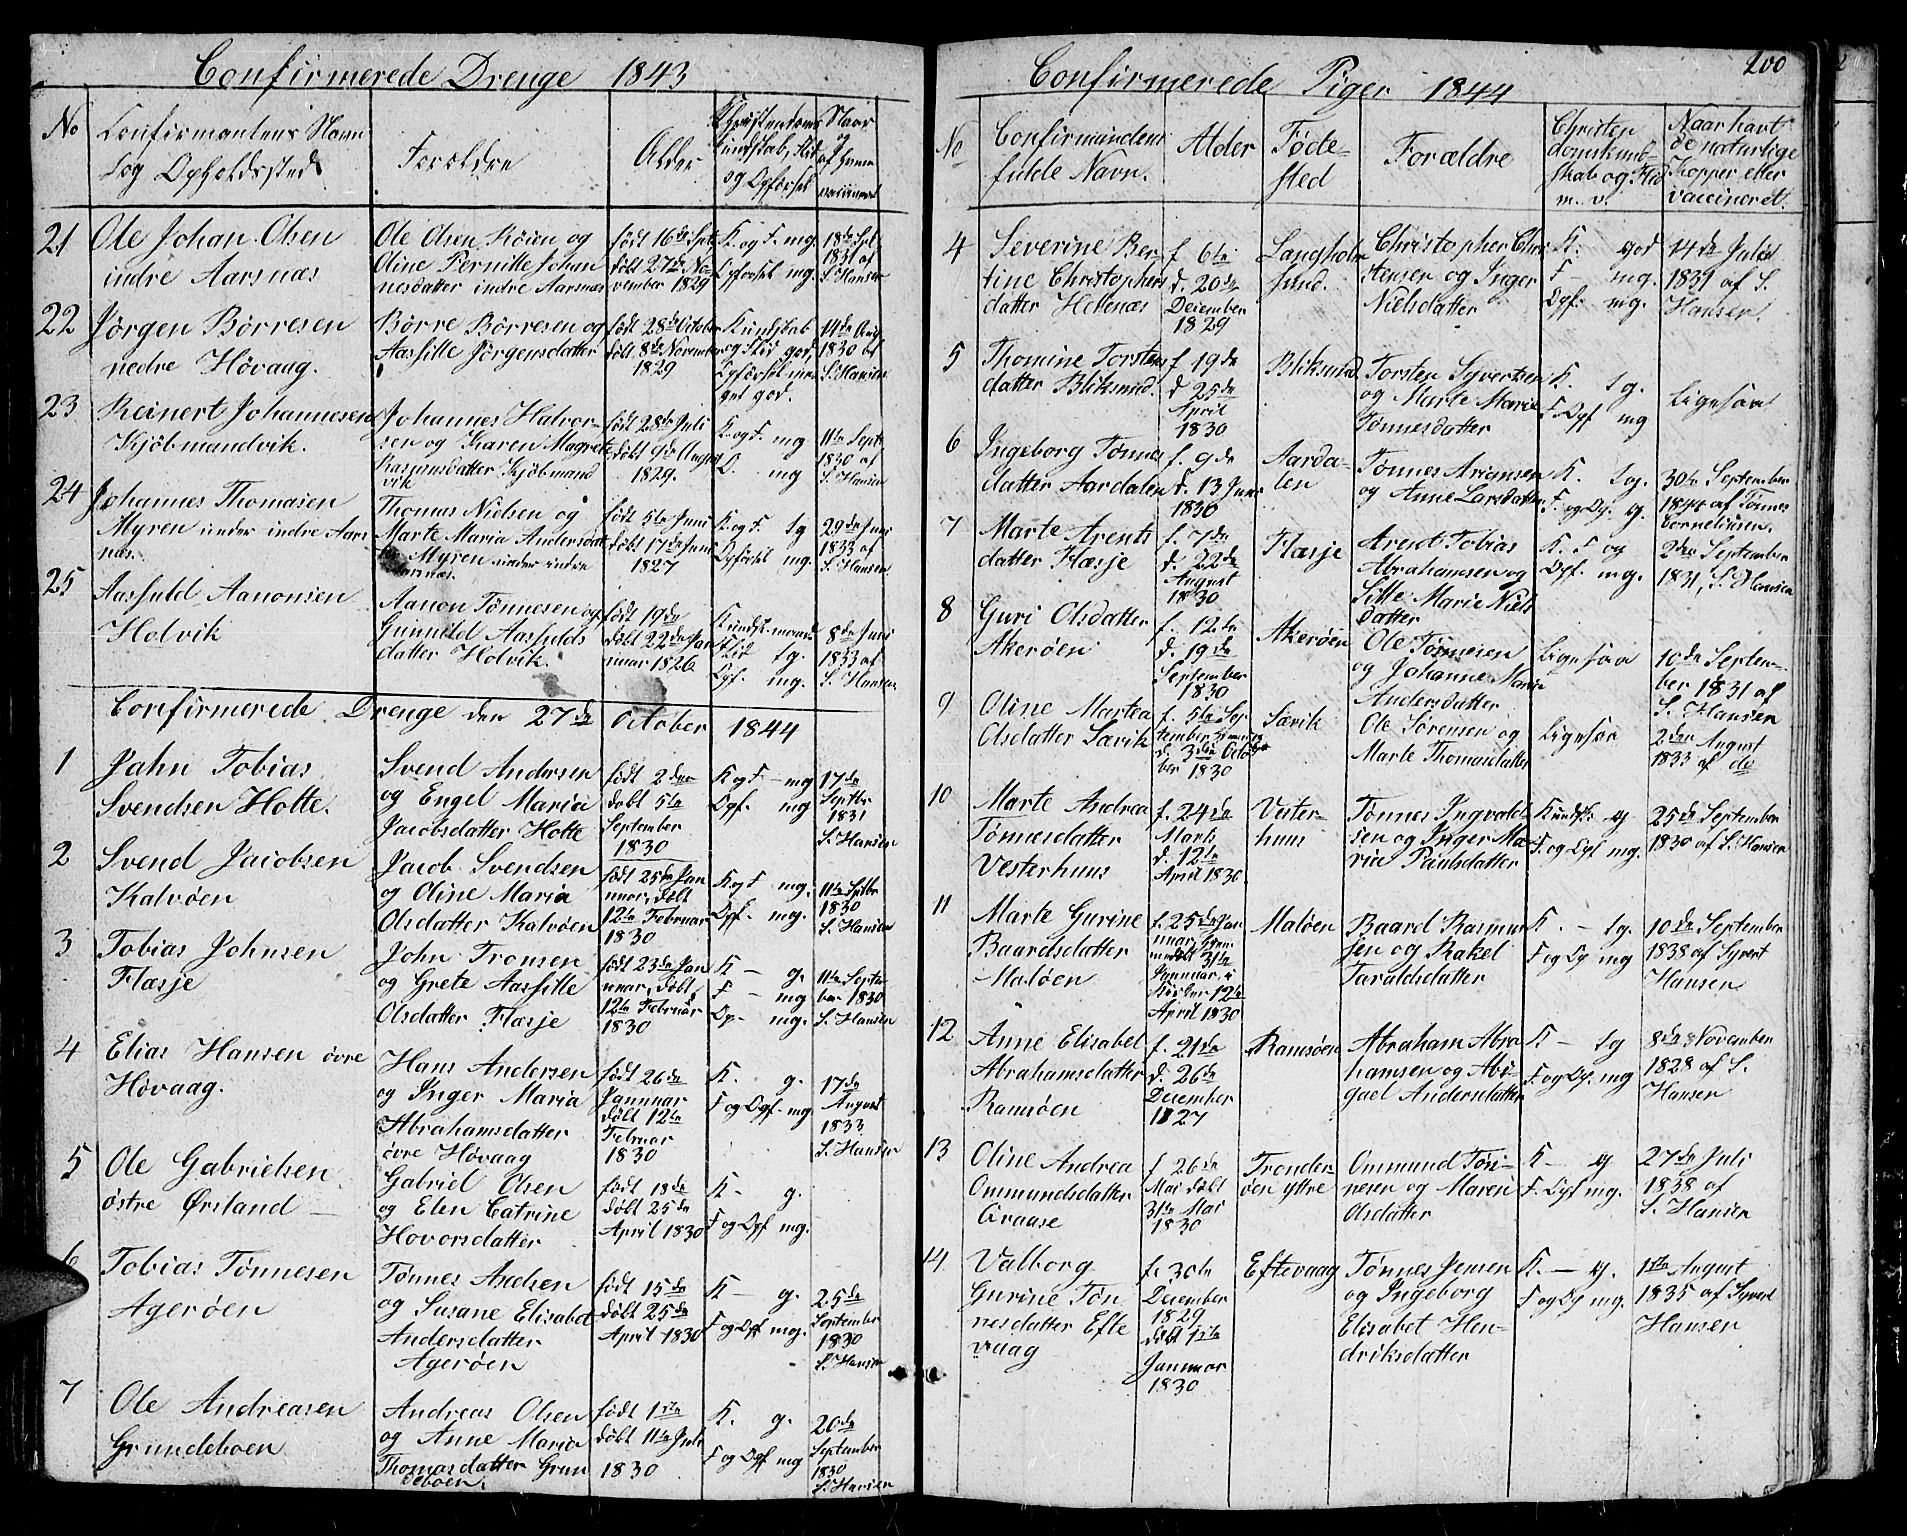 Confirmerede Drenge 1843
No
Confirmantens Navn
og Opholdssted
Forældre
Alder
Christendoms
Kundskab, Flid
og Opførsel
Naar
og
af hvem
vaccineret
21 Ole Johan Olsen
indre Aarsnæs
Ole Olsen Röien og
Oline Pernille Johan
nesdatter indre Aarsnæs
født 16de Spt
døbt 27de No-
vember 1829
K. og F. mg.
Opførsel mg.
18de Spt
1831 af
S. Hansen
22 Jørgen Børresen
nedre Høvaag.
Børre Børresen og
Aasille Jørgensdatter
født 28de October
døbt 8de November
1829
Kundskab
og Flid god,
Opførsel me
get god.
14de Aug
1830 af
S. Hansen
23 Reinert Johannesen
Kjøbmandvik.
Johannes Halvor-
sen og Karen Magrete
Rasmusdatter Kjøbmand
vik
født 28de Juli
døbt 9de August
1829.
K. og F. mg
O. mg
11te Septb
1830 af
S. Hansen
24 Johannes Thomasen
Myren under indre Aars
næs.
Thomas Nielsen og
Marte Maria Andersdat
Myren under indre
Aarsnæs.
født 5te Juni
døbt 17de Juni
1827
K. og F. tg
Opførsel mg.
29de Juni
1833 af
S. Hansen
25 Aasfuld Aanonsen
Holvik
Aanon Tønnesen og
Gunnild Aasfulds
datter Holvik.
født 19de
døbt 22de Jan
nuar 1826
Kundsk. maade
Flid tg.
Opf. mg.
8de Juni
1833 af
S. Hansen
Confirmerede Drenge den 27de October 1844
1 Jahn Tobias
Svendsen Holte.
Svend Andersen
og Engel Maria
Jacobsdatter Holte
født 2den
døbt 5te
September
1830
K og F - mg
Opf. mg
17de
Septbr
1831
S. Hansen
2 Svend Jacobsen
Kalvøen
Jacob Svendsen
og Oline Maria
Olsdatter Kalvøen
født 25de Jan
nuar, døbt
12te Februar
1830
K og F mg.
Opf. mg.
11te Sptbr
1830
S. Hansen
3 Tobias Johnsen
Flæsje
John Tronsen
og Grete Aasille
Olsdatter Flæsje
født 23de Jan
nuar, døbt
12te Februar
1830
K - g.
F - mg
Op- mg.
11te Septem
ber 1830
S. Hansen
4 Elias Hansen övre
Høvaag.
Hans Andersen
og Inger Maria
Abrahamsdatter
övre Høvaag
født 26de
Januar
døbt 12te
Februar
1830
K. g.
F og Opf. mg
17de
August
1833
S. Hansen
5 Ole Gabrielsen
østre Ørsland
Gabriel Olsen
og Elen Catrine
Hovorsdatter
født 18de
døbt 25de
April 1830
K- g.
F og Opf mg.
6 Tobias Tønnesen
Agerøen
Tønnes Andsen
og Susane Elisabet
Andersdatter
Agerøen
født 15de
døbt 25de
April 1830
K - g.
F og Opf mg.
25de
September
1830
S. Hansen
7 Ole Andreasen
Grundeboen
Andreas Olsen
og Anne Maria
Thomasdatter Grun
deboen.
født 1ste
døbt 11te Juli
1830
K. g.
F og Opf mg
20de
September
1830
S. Hansen
Confirmerede Piger 1844
200
No
Confirmandens
fulde Navn.
Alder
Føde-
sted
Forældre
Christen
domskund-
skab og Flid
m. v.
Naar havt
de naturlige
Kopper eller
vaccineret.
4 Severine Ber-
tine Christophers
datter Hellenæs
f. 6te
d. 20de
December
1829
Langholm
sund.
Christopher Chri
stensen og Inger
Nielsdatter
K. god
F mg.
Opf. mg.
14de Juli
1831 af S.
Hansen.
5 Thomine Torstens
datter Bliksund.
f. 19de
d. 25de
April
1830
Bliksund
Torsten Syvertsen
og Marte Marie
Tønnesdatter
K. tg.
F. Opf mg
Ligesaa
6 Ingeborg Tønnes
datter Aardalen
f. 9de
d. 13 Juni
1830
Aarda-
len
Tønnes Ariansen
og Anne Larsdatter
K. tg.
F. og Op. g.
30te September
1844 af Tønnes
Corneliusen.
7 Marte Arents
datter Flæsje
f. 7de
d. 22de
August
1830
Flæsje
Arent Tobias
Abrahamsen og
Sille Marie Niels
datter
K. F og
Opf. mg.
2den September
1831, S. Hansen
8 Guri Olsdatter
Akerøen
f. 12te
d. 19de
September
1830
Akerøen
Ole Tønnesen
og Johanne Marie
Andersdatter
Ligesaa
10de Septem-
ber 1831 af
S. Hansen
9 Oline Martea
Olsdatter Sævik
f. 5te Sep
tember hjemme
d. 3die Octo
ber 1830
Sævik
Ole Sørensen og
Marte Thomasdatter
Ligesaa
2den August
1833 af do
10 Marte Andrea
Tønnesdatter
Vesterhuus
f. 24de
Marts
d. 12te
April 1830
Vester-
huus
Tønnes Ingvald
sen og Inger Ma
rie Paulsdatter
Kundsk. g
F. og Opf mg.
25de September
1830 af S. Hansen
11 Marte Gurine
Baardsdatter
Maløen
f. 25de Jan
nuar, hjem
medøbt 31te
Januar, i
Kirken 12te
April 1830
Maløen
Baard Rasmus
sen og Rakel
Taraldsdatter
K. - tg.
F og Op mg
10de September
1838 af Syvert
Hansen
12 Anne Elisabet
Abrahamsdatter
Ramsøen
f. 21de
d. 26de
December
1827
Ramsøen
Abraham Abra
hamsen og Abi-
gael Andersdatter
K - tg
F. og Opf. mg
8de November
1828 af S.
Hansen
13 Oline Andrea
Ommundsdatter
Graase
f 26de
Mai døbt
31te Mai
1830
Tronder-
öen yttre
Ommund Tøn-
nesen og Maren
Olsdatter
K - g
F. Opf mg.
27de Juli
1838 af
S. Hansen
14 Valborg
Gurine Tøn
nesdatter Efte
vaag
f. 30te
December
1829
døbt 1ste
Januar
1830
Eftevaag
Tønnes Jensen
og Ingeborg
Elisabet Hen-
driksdatter
K. - g.
F og Op mg.
1ste August
1835 af Syvert
Hansen